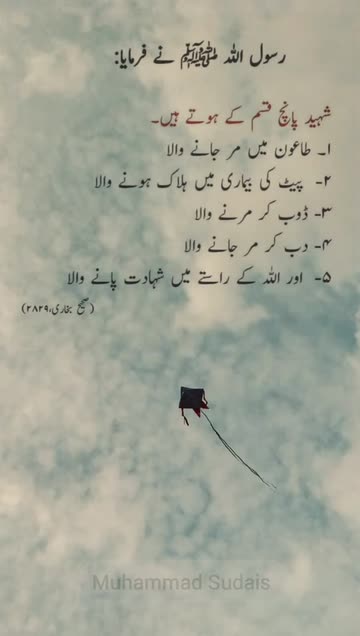 رسول اللہ ﷺ نے فرمایا:
شہید پانچ قسم کے ہوتے ہیں۔
۱۔ طاعون میں مر جانے والا
۲- پیٹ کی بیماری میں ہلاک ہونے والا
۳- ڈوب کر مرنے والا
۴- دب کر مر جانے والا
۵- اور اللہ کے راستے میں شہادت پانے والا
(صحیح بخاری،۲۸۲۹)
Muhammad Sudais